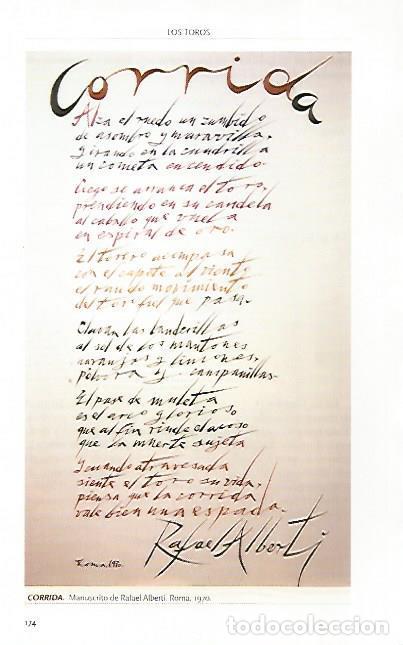 LOS TOROS
Corrida
Alza el ruedo un zumbido
de asombro y maravilla,
girando en la cuadrilla
un cometa encendido.
Ciego se arranca el toro,
prendiendo en su candela
al caballo que vuela
en espiral de oro.
El torero acompasa
con el capote al viento
el raudo movimiento
del toro fiel que pasa.
Clavan las banderillas
al sol de los mantones
naranjos y limones,
pólvora y campanillas.
El pase de muleta
es el arco glorioso
que al fin rinde al acoso
que la muerte sujeta
Y cuando atravesada
siente el toro su vida,
piensa que la corrida
vale bien una espada.
Rafael Alberti
Roma, 1970.
CORRIDA. Manuscrito de Rafael Alberti. Roma, 1970.
174
todocoleccion